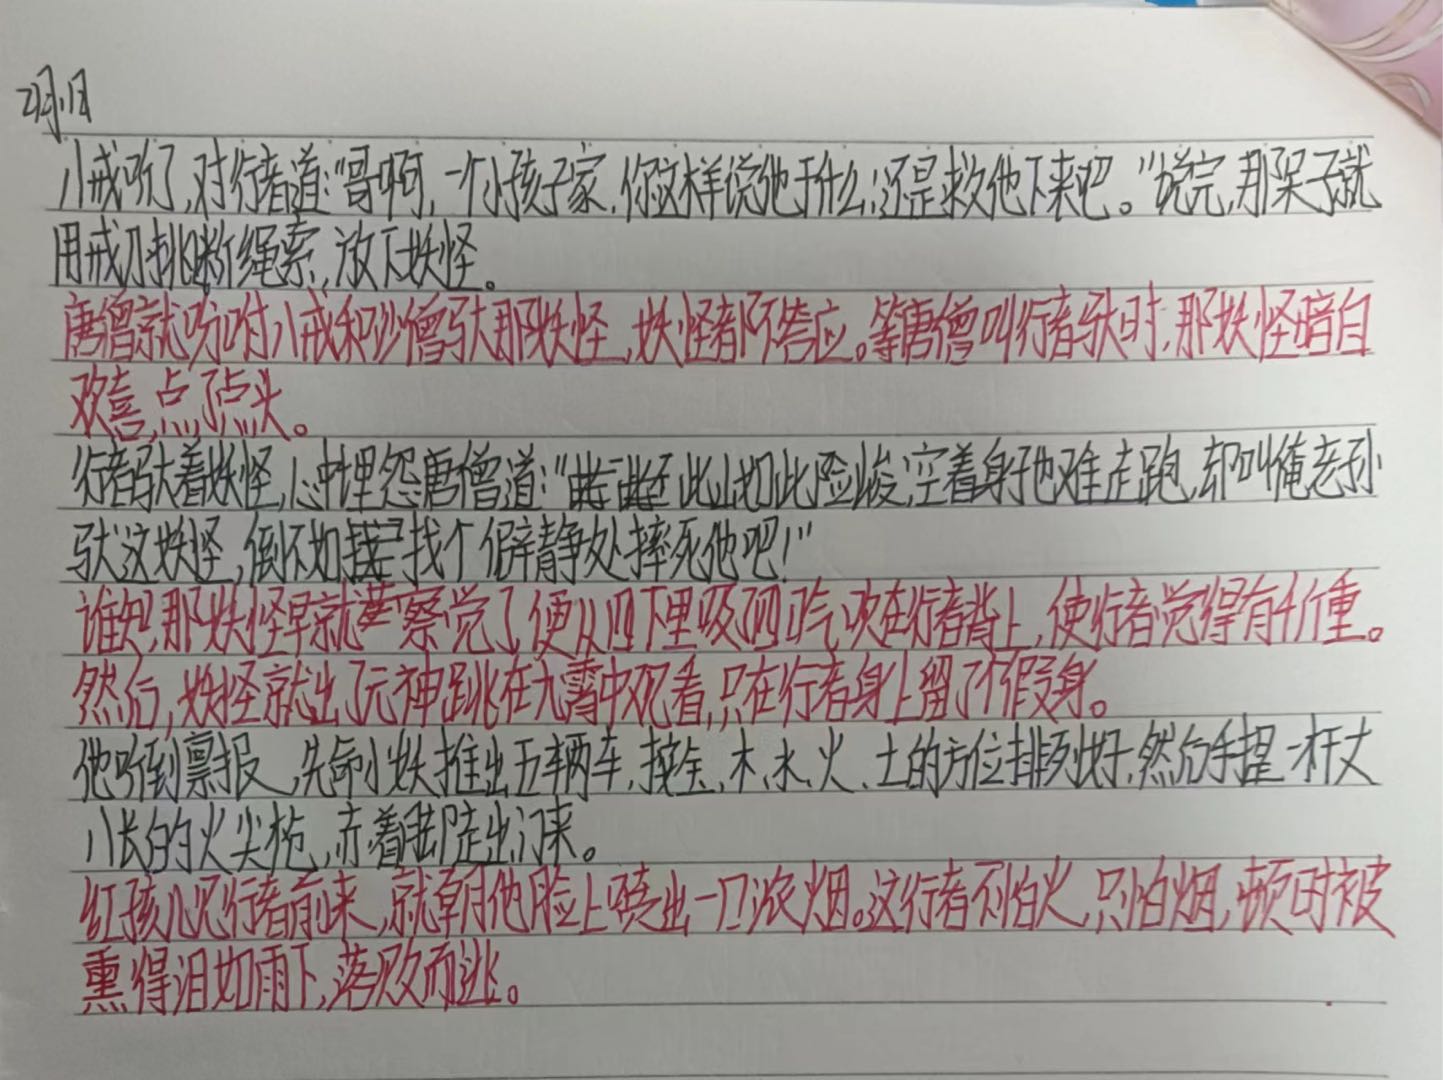 2月1日
八戒听了,对行者道:"哥啊,一个小孩子家,你这样说他干什么;还是救他下来吧。"说完,那呆子就
用戒刀挑断绳索,放下妖怪。
唐僧就吩咐八戒和沙僧驮那妖怪,妖怪都不答应。等唐僧叫行者驮时,那妖怪暗自
欢喜,点了点头。
行者驮着妖怪,心中埋怨唐僧道:"此山如此险峻,空着身子也难走跑,却叫俺老孙
驮这妖怪,倒不如找个僻静处摔死他吧!"
谁知,那妖怪早就察觉了,便从四下里吸了四口气,吹在行者背上,使行者觉得有千斤重。
然后,妖怪就出了元神,跳在九霄中观看,只在行者身上留了个假身。
他听到禀报,先命小妖推出五辆车,按金、木、水、火、土的方位排列好,然后手提一杆丈
八长的火尖枪,赤着脚走出门来。
红孩儿见行者前来,就朝他脸上喷出一口浓烟。这行者不怕火,只怕烟,顿时被
熏得泪如雨下,落败而逃。